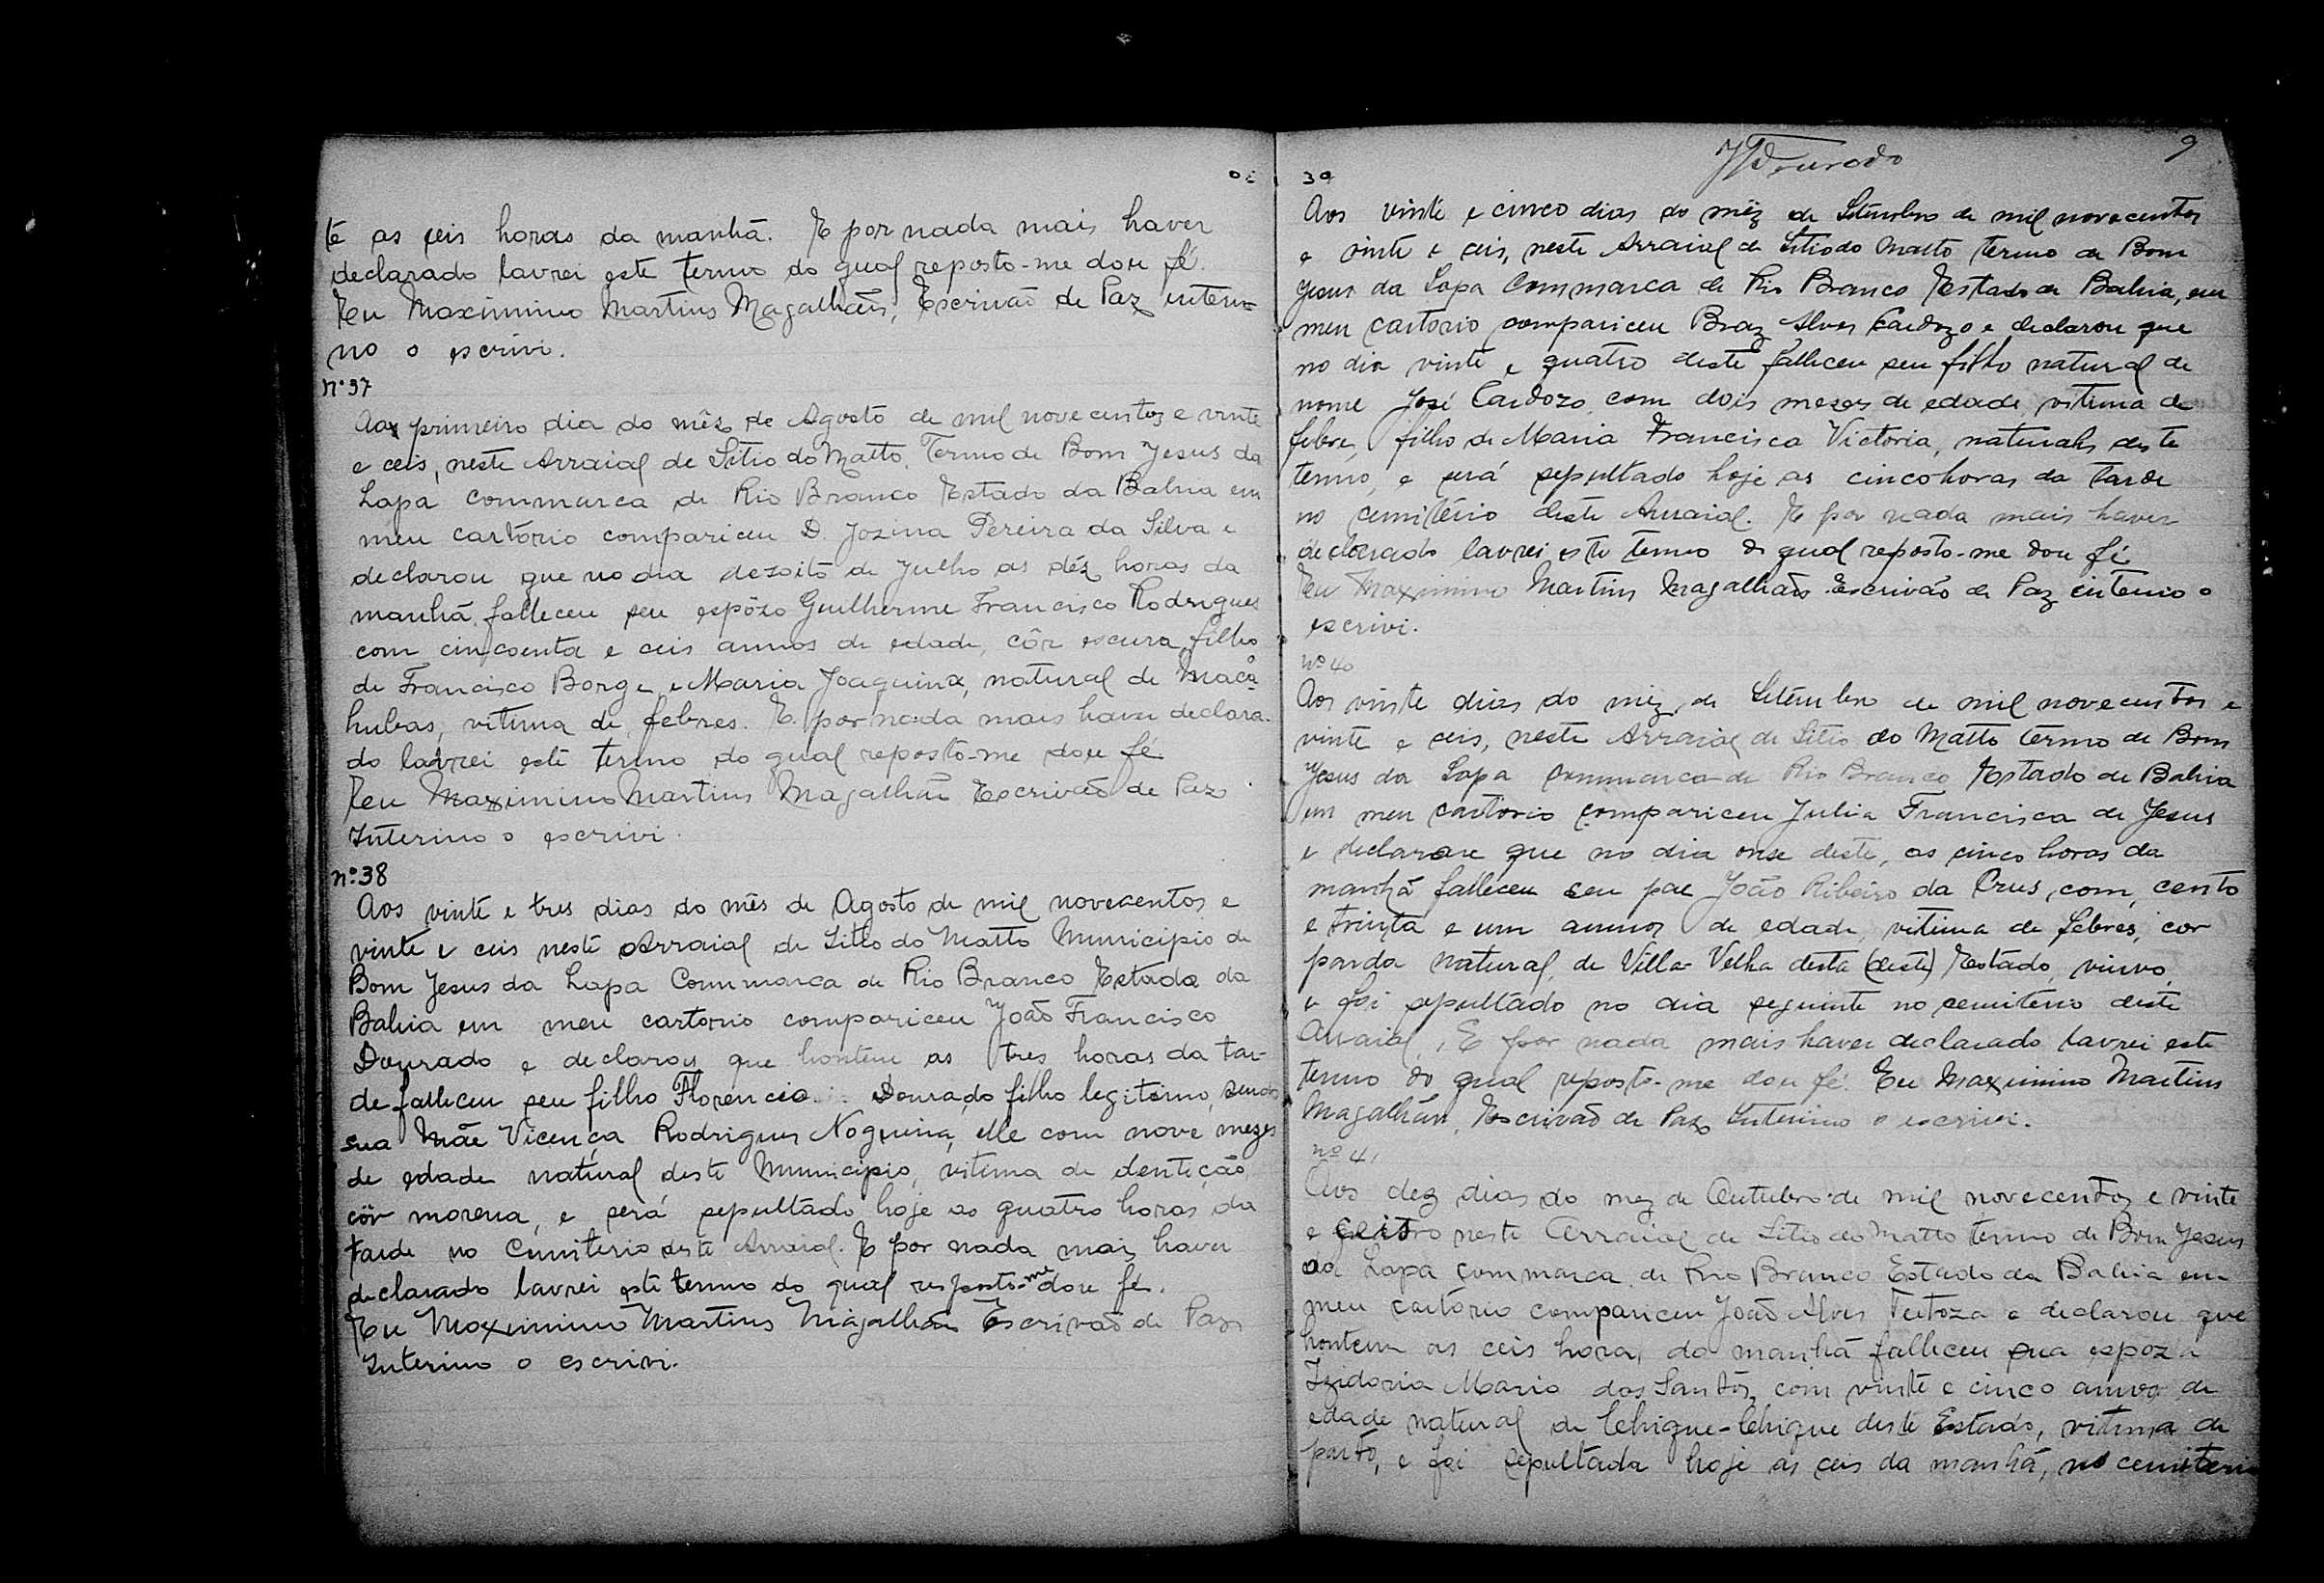 té as seis horas da manhã. E por nada mais haver
declarado lavrei este termo do qual reposto-me dou fé.
Eu Maximino Martins Magalhães, Escrivão de Paz interi-
no o escrivi.
nº 37
Aos primeiro dia do mês de Agosto de mil novecentos e vinte
e ceis, neste Arraial de Sitio do Matto, Termo de Bom Jesus da
Lapa commarca de Rio Branco Estado da Bahia em
meu cartório compariceu D. Jozina Pereira da Silva e
declarou que no dia dezoito de Julho as déz horas da
manhã falleceu seu espôzo Guilherme Francisco Rodrigues
com cincoenta e ceis annos de edade, côr escura, filho
de Francisco Borge e Maria Joaquina, natural de Maca-
hubas, vitima de febres. E por nada mais haver declara-
do lavrei este termo do qual reposto-me dou fé
Eu Maximino Martins Magalhães Escrivão de Paz
Interino o escrivi.
nº 38
Aos vinte e tres dias do mês de Agosto de mil novecentos e
vinte e ceis neste Arraial de Sitio do Matto Municipio de
Bom Jesus da Lapa Commarca de Rio Branco Estado da
Bahia em meu cartorio compariceu João Francisco
Dourado e declarou que hontem as tres horas da tar-
de falleceu seu filho Florencio Dourado filho legitimo, sendo
sua Mãe Vicença Rodrigues Nogueira, elle com nove mezes
de edade natural deste Municipio, vitima de dentição,
côr morena, e será sepultado hoje as quatro horas da
tarde no Cemiterio deste Arraial. E por nada mais haver
declarado lavrei este termo do qual resposto-me dou fé.
Eu Maximino Martins Magalhães Escrivão de Paz
Interino o escrivi.
9
39
Aos vinte e cinco dias do mêz de Setembro de mil novecentos
e vinte e ceis, neste Arraial de Sitio do Matto termo de Bom
Jesus da Lapa Commarca de Rio Branco Estado da Bahia, em
meu cartorio compariceu Braz Alves Cardozo e declarou que
no dia vinte e quatro deste falleceu seu filho natural de
nome José Cardozo com dois mezes de edade, vitima de
febre, filho de Maria Francisca Victoria, naturaes deste
termo, e será sepultado hoje as cinco horas da tarde
no cemitério deste Arraial. E por nada mais haver
declarado lavrei este termo do qual reposto-me dou fé
Eu Maximino Martins Magalhães Escrivão de Paz interino o
escrivi.
nº 40
Aos vinte dias do mêz de Setembro de mil novecentos e
vinte e ceis, neste Arraial de Sitio do Matto termo de Bom
Jesus da Lapa commarca de Rio Branco Estado da Bahia
em meu cartorio compariceu Julia Francisca de Jesus
e declarou que no dia onse deste, as cinco horas da
manhã falleceu seu pae João Ribeiro da Crus, com cento
e trinta e um annos de edade, vitima de febres, cor
parda natural de Villa-Velha desta (deste) Estado, viuvo
e foi sepultado no dia seguinte no cemiterio deste
Arraial. E por nada mais haver declarado lavrei este
termo do qual reposto-me dou fé. Eu Maximino Martins
Magalhães, Escrivão de Paz Interino o escrivi.
nº 41
Aos dez dias do mez de Outubro de mil novecentos e vinte
e neste Arraial de Sitio do Matto termo de Bom Jesus
da Lapa commarca de Rio Branco Estado da Bahia em
meu cartório compariceu João Alves Feitoza e declarou que
hontem as ceis horas da manhã falleceu sua espoza
Izidoria Maria dos Santos, com vinte e cinco annos de
edade natural de Chique-Chique deste Estado, vitima de
parto, e foi sepultada hoje as ceis da manhã, no cemiterio